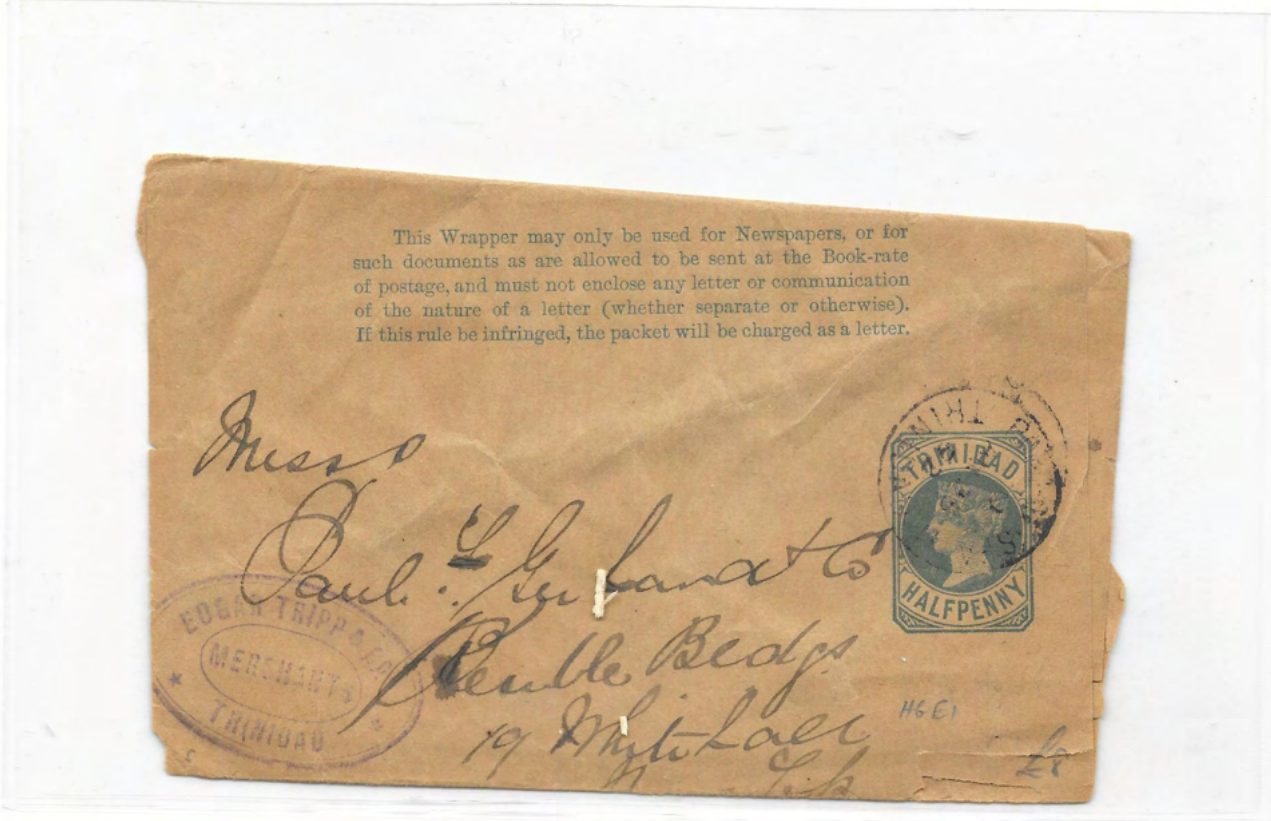 This Wrapper may only be used for Newspapers, or for
such documents as are allowed to be sent at the Book-rate
of postage, and must not enclose any letter or communication
of the nature of a letter (whether separate or otherwise).
If this rule be infringed, the packet will be charged as a letter.
Messrs
Paul F. Gerhard & Co
Bldgs
19 Whitehall
TRINIDAD
HALFPENNY
EDGAR TRIPP & CO
MERCHANTS
TRINIDAD
HG E1
£8